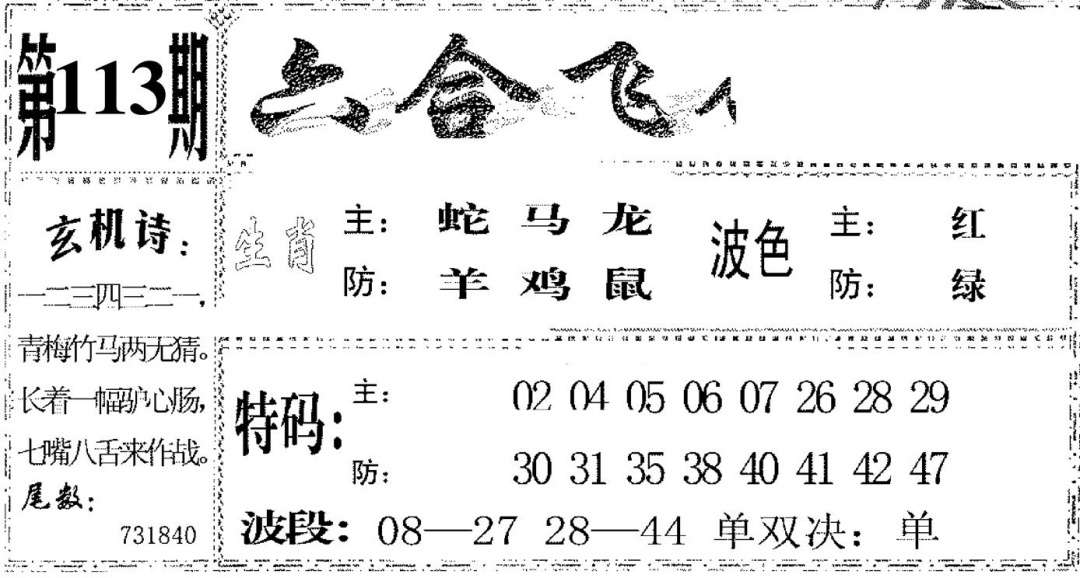 第113期
六合飞
玄机诗:
一二三四三二一,
青梅竹马两无猜。
长着一幅驴心肠,
七嘴八舌来作战。
尾数:
731840
生肖
主: 蛇 马 龙
防: 羊 鸡 鼠
波色
主: 红
防: 绿
特码:
主: 02 04 05 06 07 26 28 29
防: 30 31 35 38 40 41 42 47
波段: 08—27 28—44 单双决: 单